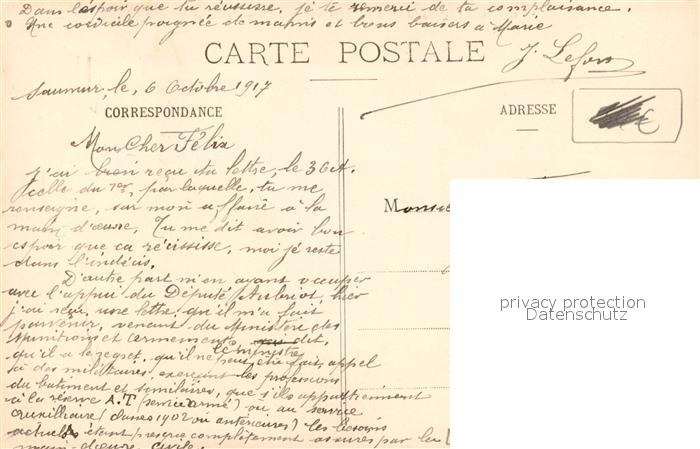 Dans l'espoir que tu réussisse, je te remercie de ta complaisance.
Une cordiale poignée de mains et bons baisers à Marie
J. Lefort
CARTE POSTALE
Saumur, le, 6 Octobre 1917
CORRESPONDANCE
ADRESSE
Mon Cher Félix
J'ai bien reçu ta lettre, le 3 Oct.
celle du 1er, par laquelle, tu me
renseigne, sur mon affaire à la
main d'œuvre. Tu me dit avoir bon
espoir que ca réussisse, moi je reste
dans l'indécis.
D'autre part m'en ayant occuper
avec l'appui du Député, hier
j'ai reçu une lettre qu'il m'a fait
parvenir, venant du Ministère des
Munitions et armements dit,
le ministre
qu'il a le regret, qu'il ne peut être fait, appel
ici des militaires exerçant les professions
du batiment et similaires, que s'ils appartiennent
à la réserve A.T (service armé) ou au service
auxilliaire (classe 1902 ou antérieures) les besoins
actuels étant presque complètement assurés par la
main-d'œuvre civile.
privacy protection
Datenschutz